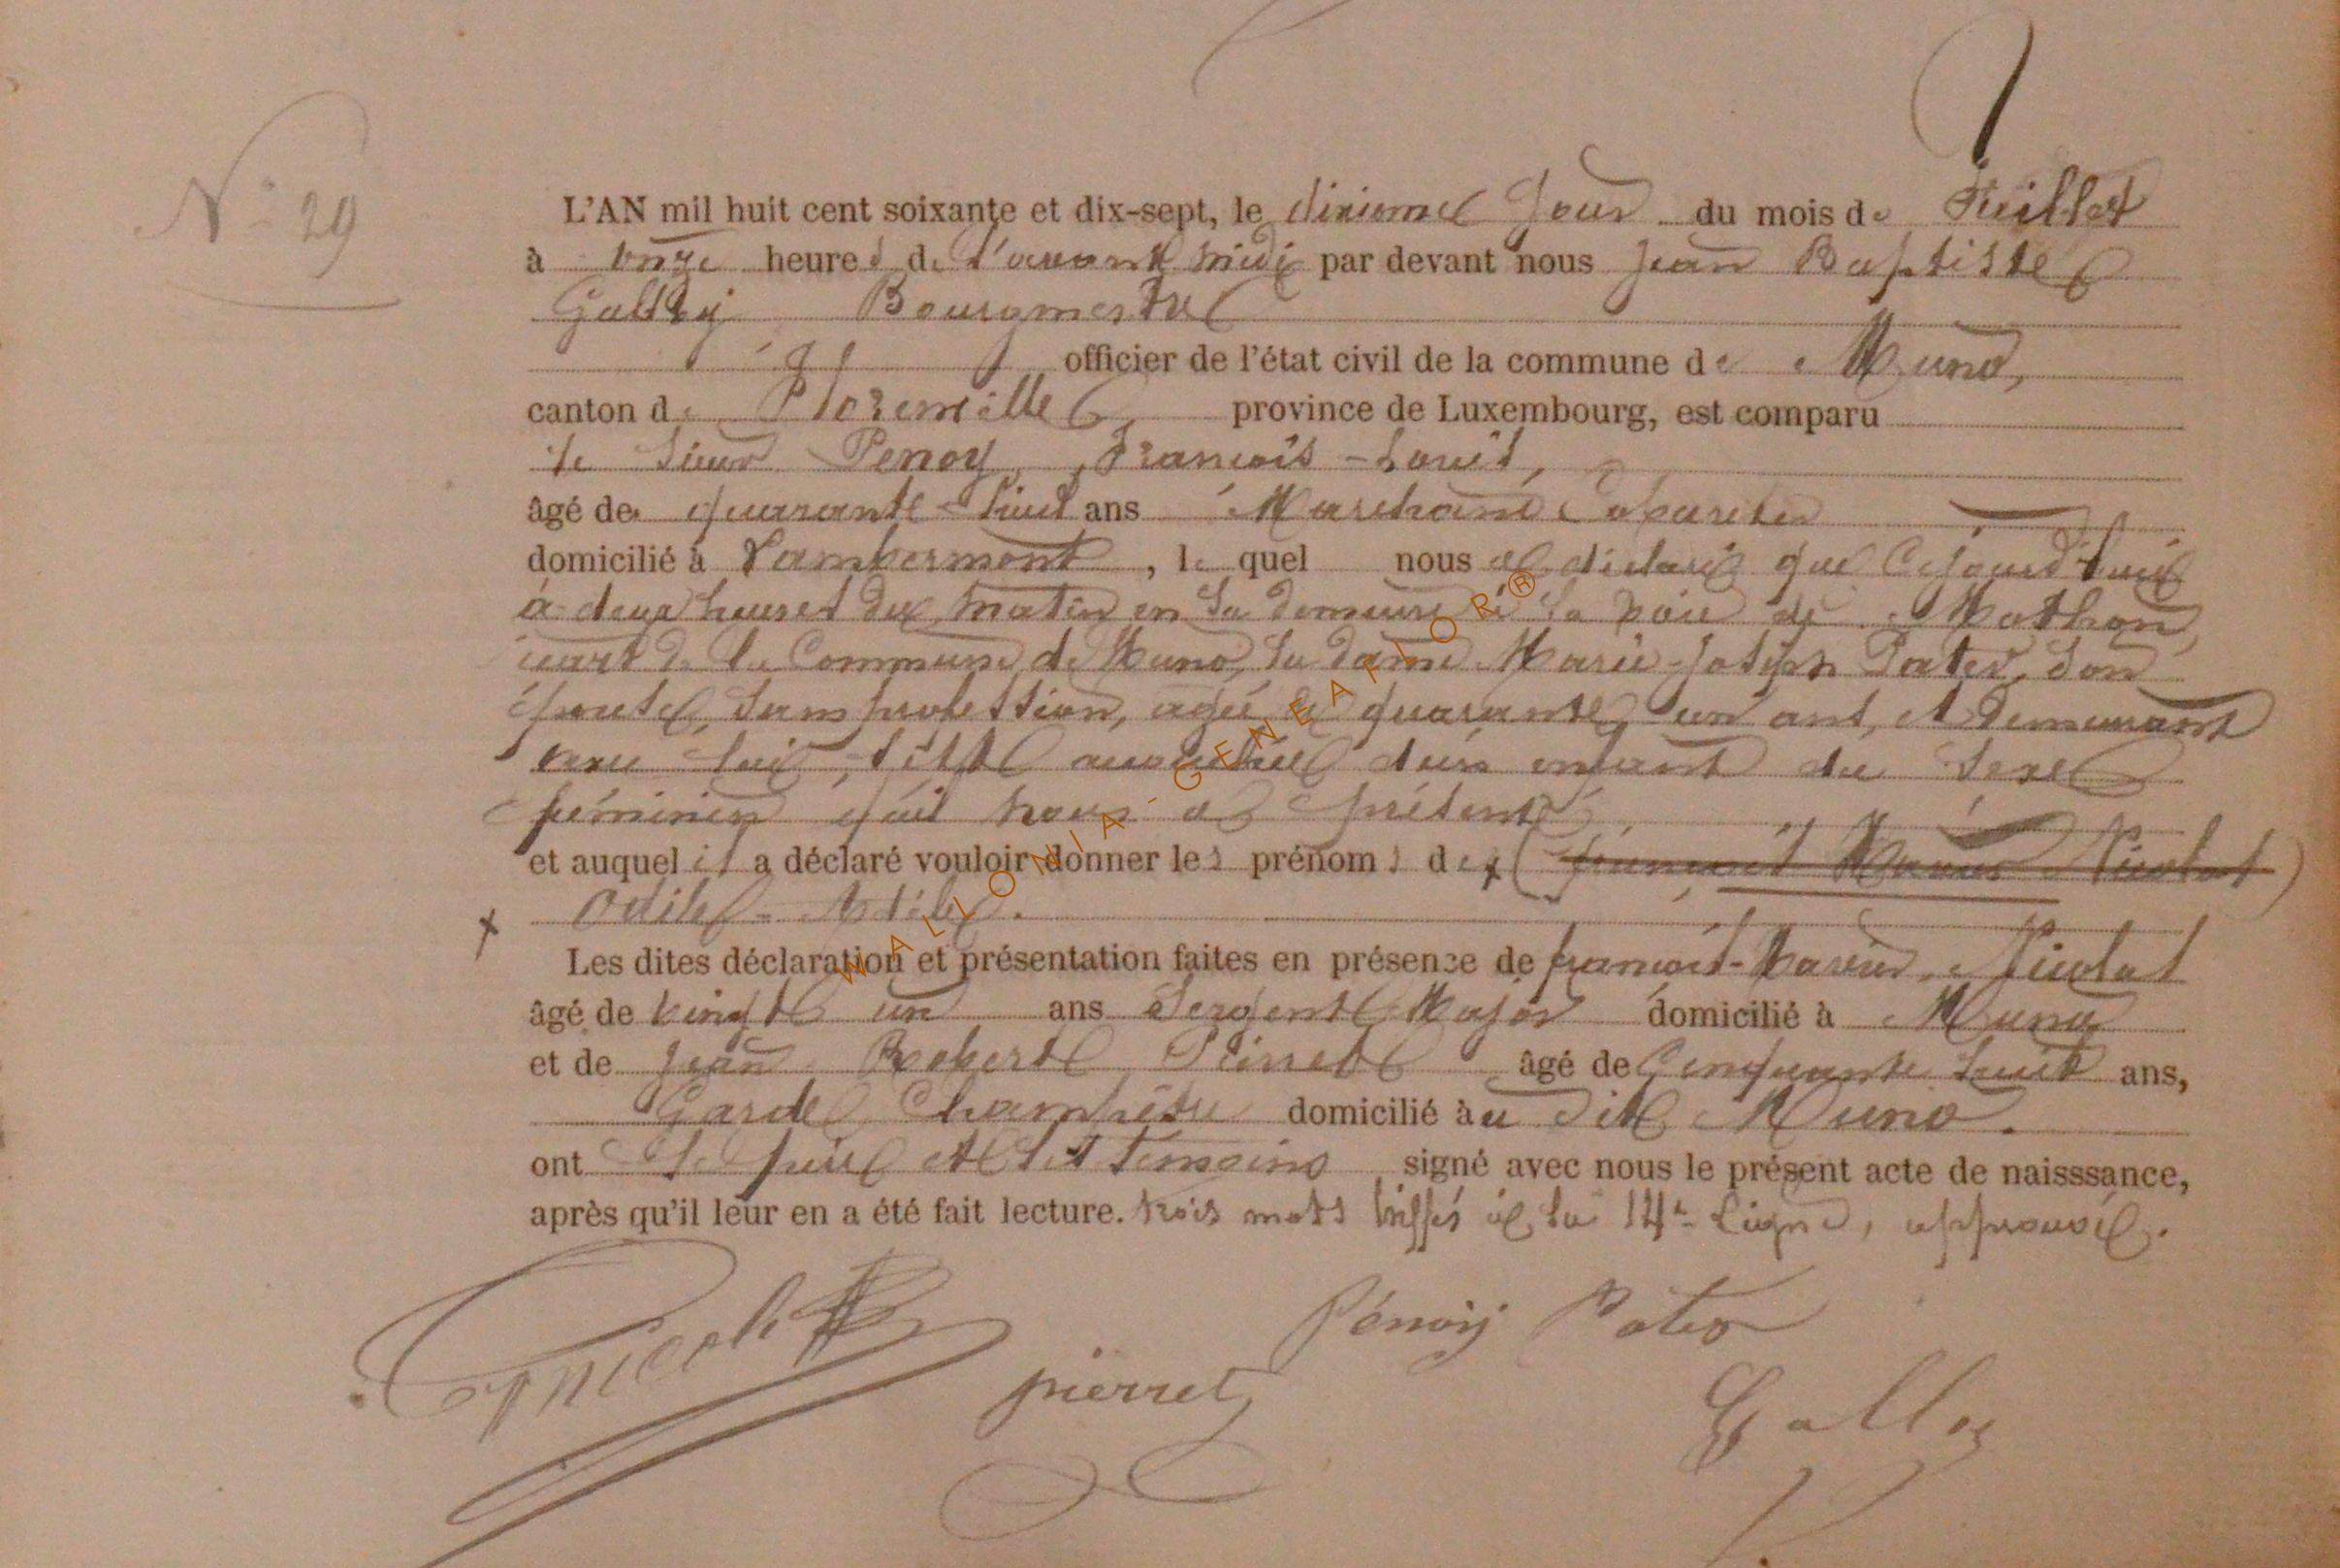 N° 29
L'AN mil huit cent soixante et dix-sept, le dixieme Jour du mois de Juillet
à onze heures de l'avant midi par devant nous Jean Baptiste
Bourgmestre
officier de l'état civil de la commune de Muno,
canton de Florenville province de Luxembourg, est comparu
le sieur Penoy, François-Louis,
âgé de quarante-huit ans Marchand Cabaretier
domicilié à Lambermont, le quel nous a déclaré que Cejourd'huis
à deux heures du matin en sa demeure à la de Mathon
de la Commune de Muno, la dame Marie-Joseph Pater, son
épouse, sans profession, agée de quarante, un ans, et demeurant
avec lui, s'est accouchée d'un enfant du sexe
féminin qu'il nous a présenté,
et auquel il a déclaré vouloir donner les prénoms de x (françois Marius Nicolas)
x Odile - Adèle.
Les dites déclaration et présentation faites en présence de françois-Marius, Nicolas
âgé de vingt un ans Sergent Major domicilié à Muno
et de Jean Robert Pierret âgé de Cinquante huit ans,
Garde Champêtre domicilié au dit Muno.
ont le père et les témoins signé avec nous le présent acte de naisssance,
après qu'il leur en a été fait lecture. trois mots biffés à la 14e Ligne, approuvé.
Pénoy Pater
pierret
WALLONIA-GENEAFIOR®